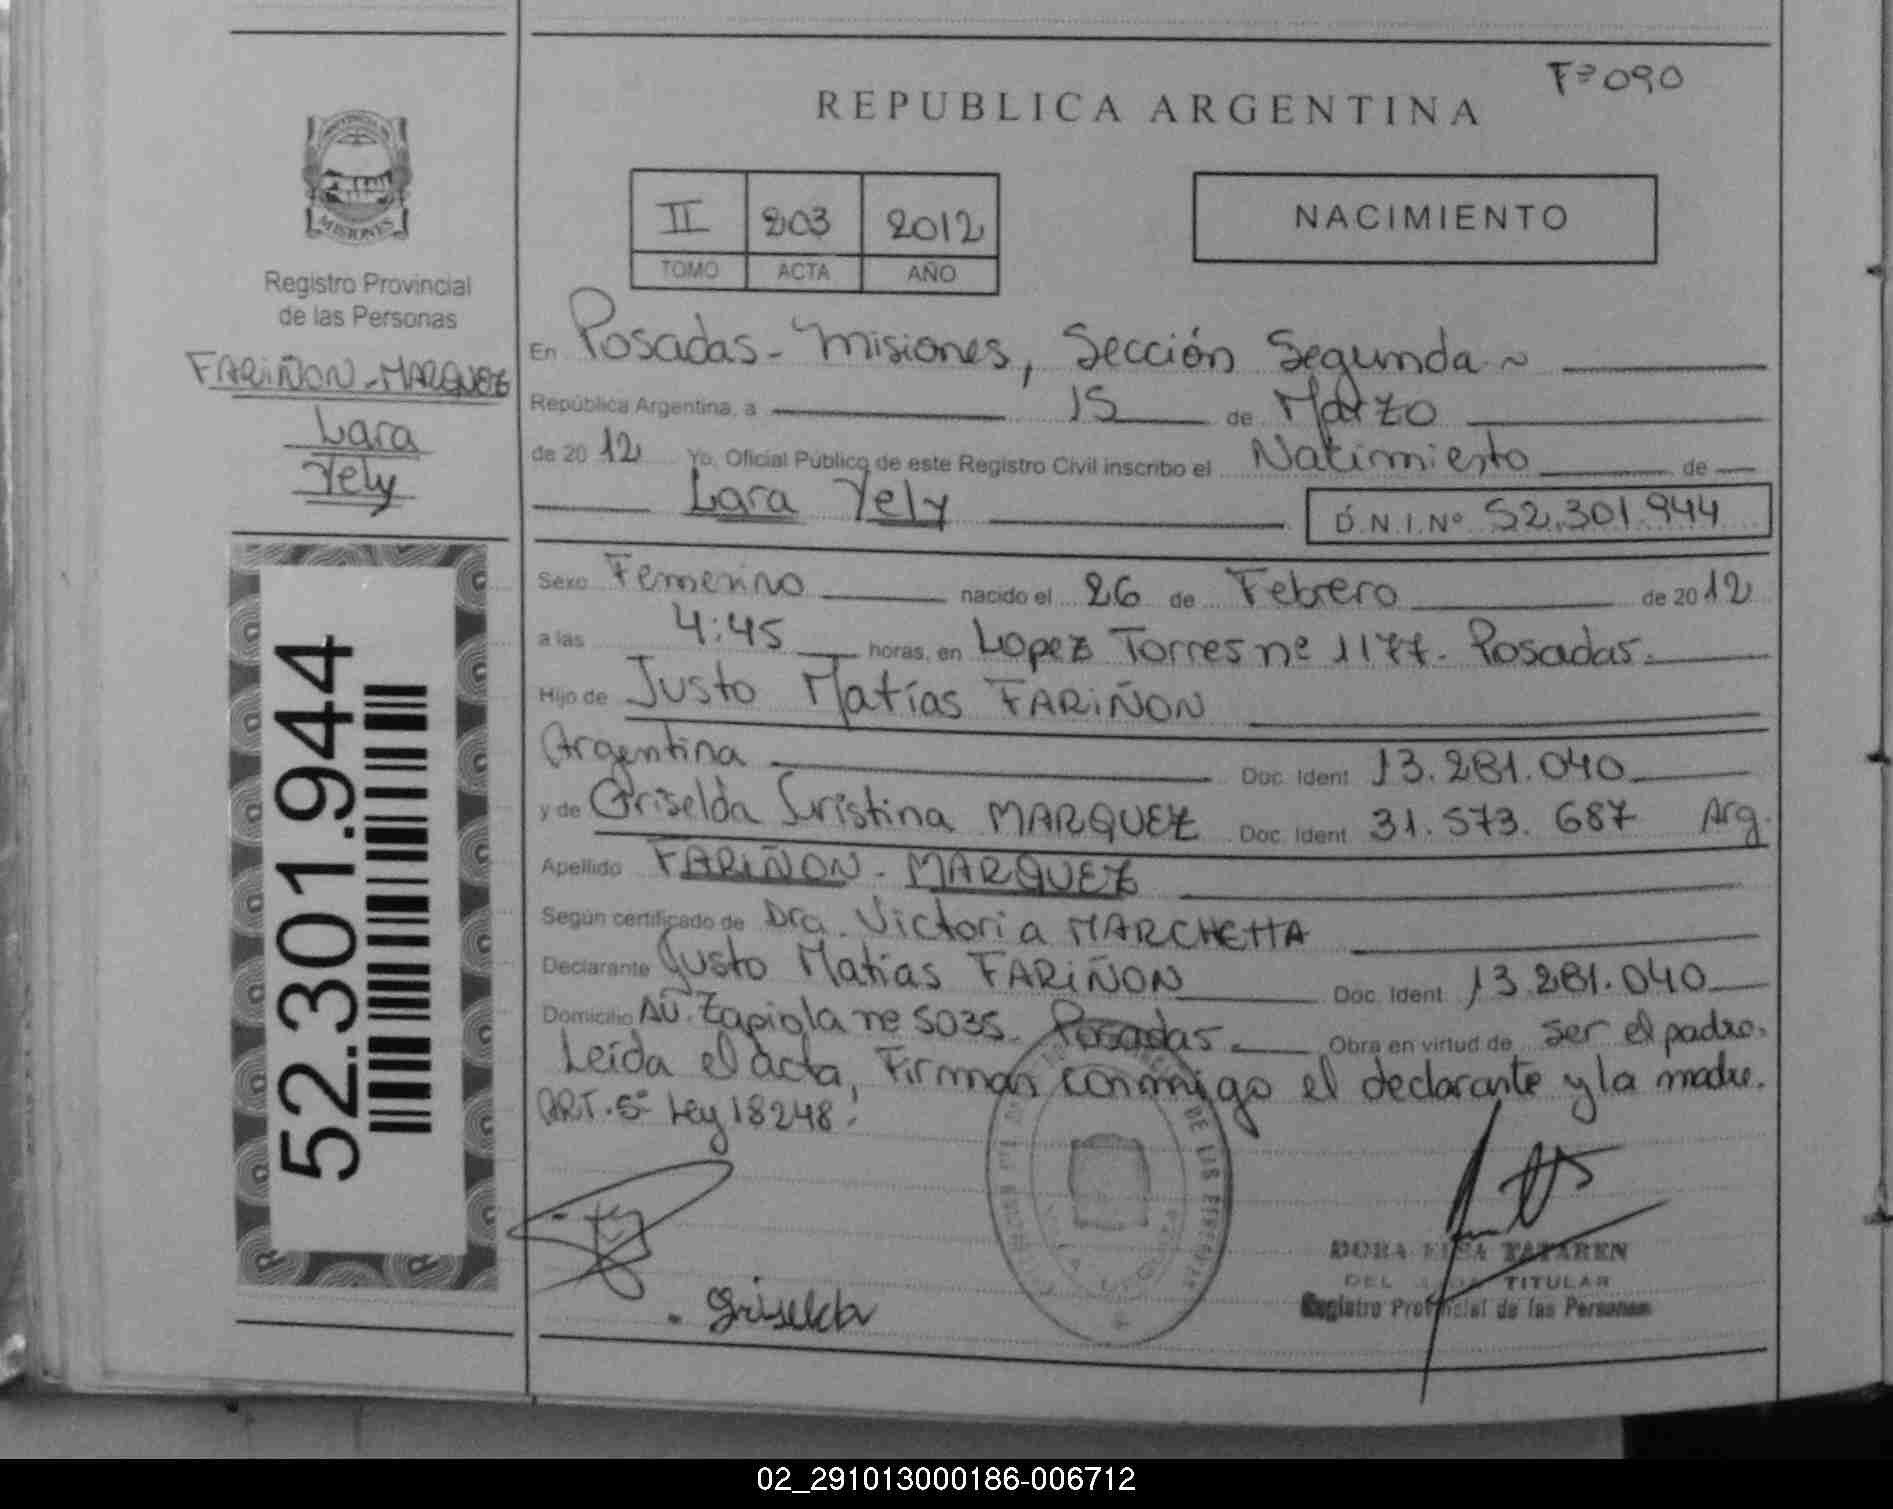 Fº 090
REPUBLICA ARGENTINA
MISIONES
Registro Provincial
de las Personas
FARIÑON-MARQUEZ
Lara
Yely
52.301.944
II 203 2012
TOMO ACTA AÑO
NACIMIENTO
En Posadas - Misiones, Sección Segunda ~
República Argentina, a 15 de Marzo
de 2012 Yo, Oficial Público de este Registro Civil inscribo el Nacimiento de
Lara Yely D.N.I.Nº 52.301.944
Sexo Femenino nacido el 26 de Febrero de 2012
a las 4:45 horas, en Lopez Torres nº 1177. Posadas.
Hijo de Justo Matías FARIÑON
Argentina Doc. Ident 13.281.040
y de Griselda Cristina MARQUEZ Doc. Ident 31.573.687 Arg.
Apellido FARIÑON - MARQUEZ
Según certificado de Dra. Victoria MARCHETTA
Declarante Justo Matías FARIÑON Doc. Ident 13.281.040
Domicilio AV. Zapiola nº 5035. Posadas. Obra en virtud de ser el padre.
Leída el acta, Firman conmigo el declarante y la madre.
ART. 5º Ley 18248.
DE LAS PERSONAS
Griselda
DORA ELSA TATAREN
TITULAR
Registro Provincial de las Personas
02_291013000186-006712